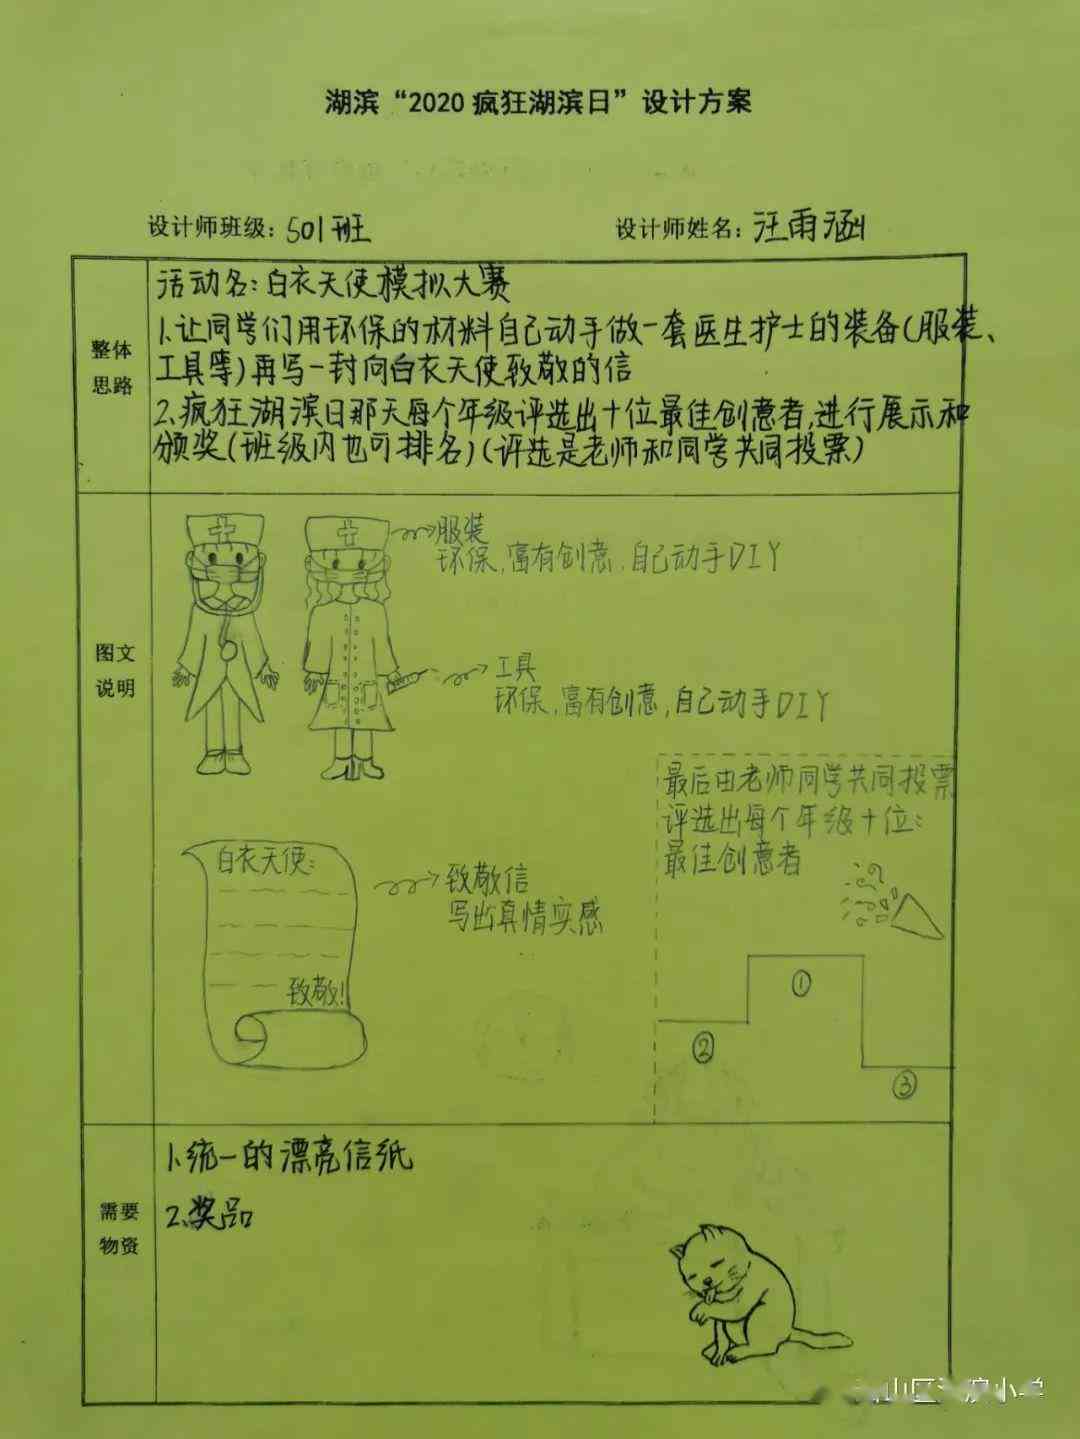 湖滨“2020疯狂湖滨日”设计方案
设计师班级：501班
设计师姓名：汪雨涵
整体
思路
活动名：白衣天使模拟大赛
1.让同学们用环保的材料自己动手做一套医生护士的装备（服装、
工具等）再写一封向白衣天使致敬的信
2.疯狂湖滨日那天每个年级评选出十位最佳创意者,进行展示和
颁奖（班级内也可排名）（评选是老师和同学共同投票）
图文
说明
服装
环保,富有创意,自己动手DIY
工具
环保,富有创意,自己动手DIY
最后由老师同学共同投票
评选出每个年级十位：
最佳创意者
白衣天使：
致敬！
致敬信
写出真情实感
①
②
③
需要
物资
1.统一的漂亮信纸
2.奖品
山区 滨小学